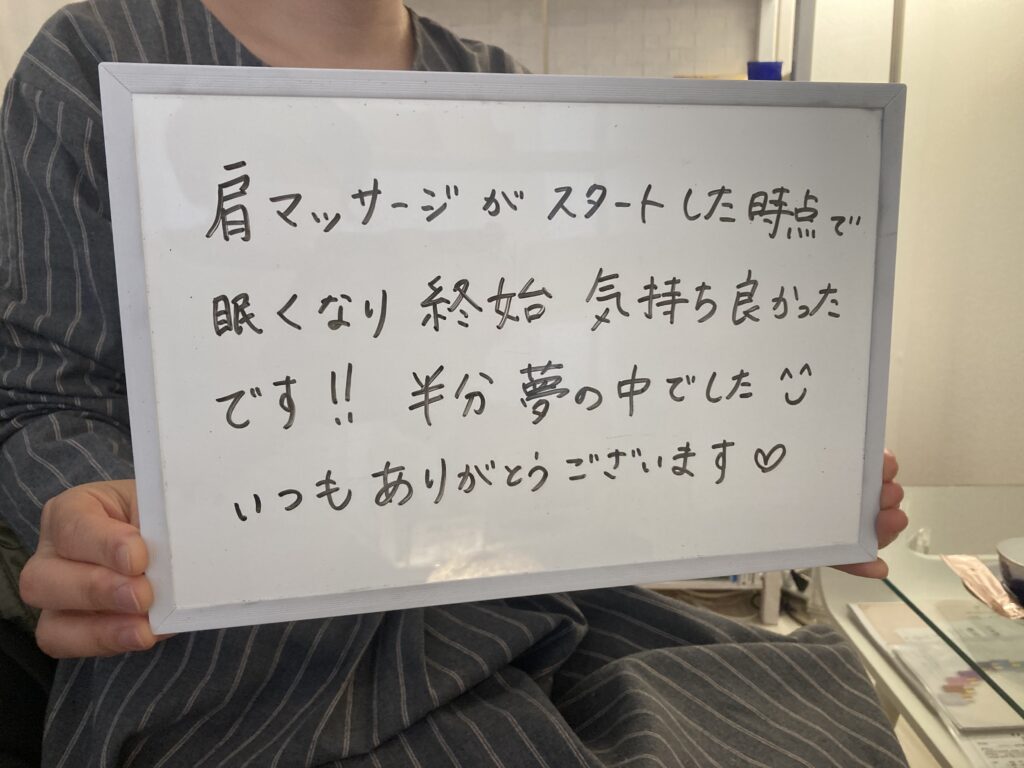 肩マッサージが スタートした時点で
眠くなり 終始 気持ち良かった
です!! 半分 夢の中でした ^^
いつもありがとうございます♡